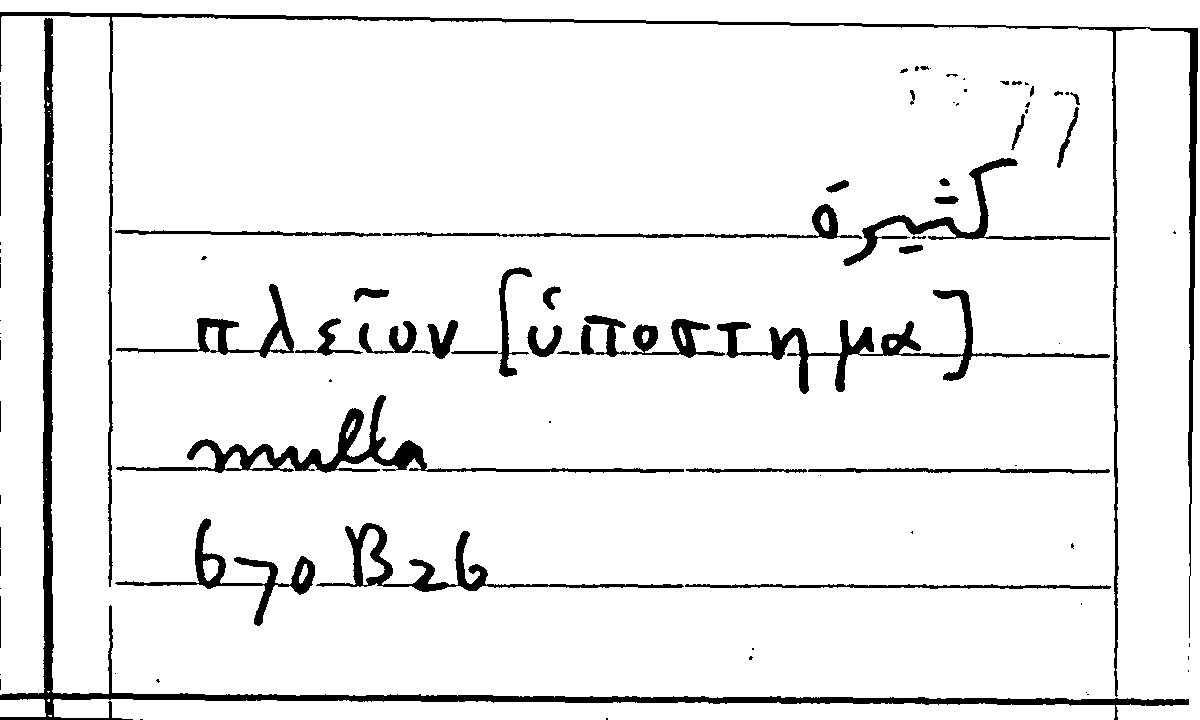 كثيرة
πλεῖον [ὑποστημα]
multa
670 B26